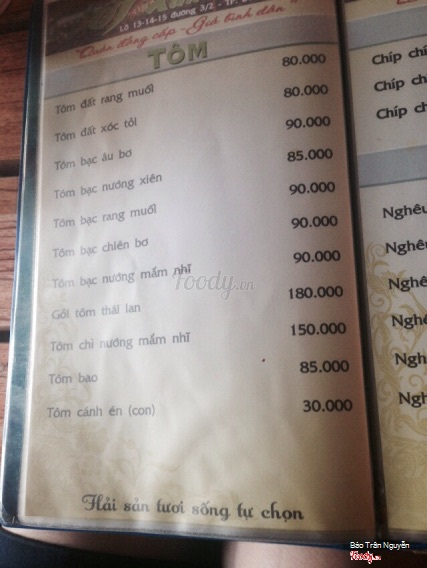 Lô 13-14-15 đường 3/2 - TP.
"Quán đẳng cấp - Giá bình dân"
TÔM
Tôm đất rang muối 80.000
Tôm đất xóc tỏi 80.000
Tôm bạc âu bơ 90.000
Tôm bạc nướng xiên 85.000
Tôm bạc rang muối 90.000
Tôm bạc chiên bơ 90.000
Tôm bạc nướng mắm nhĩ 90.000
Gỏi tôm thái lan 180.000
Tôm chì nướng mắm nhĩ 150.000
Tôm bao 85.000
Tôm cánh én (con) 30.000
Hải sản tươi sống tự chọn
Chíp
Chíp
Chíp
Nghêu
Nghê
Nghê
Nghê
Ngh
Ngh
foody.vn
Bảo Trân Nguyễn
foody.vn